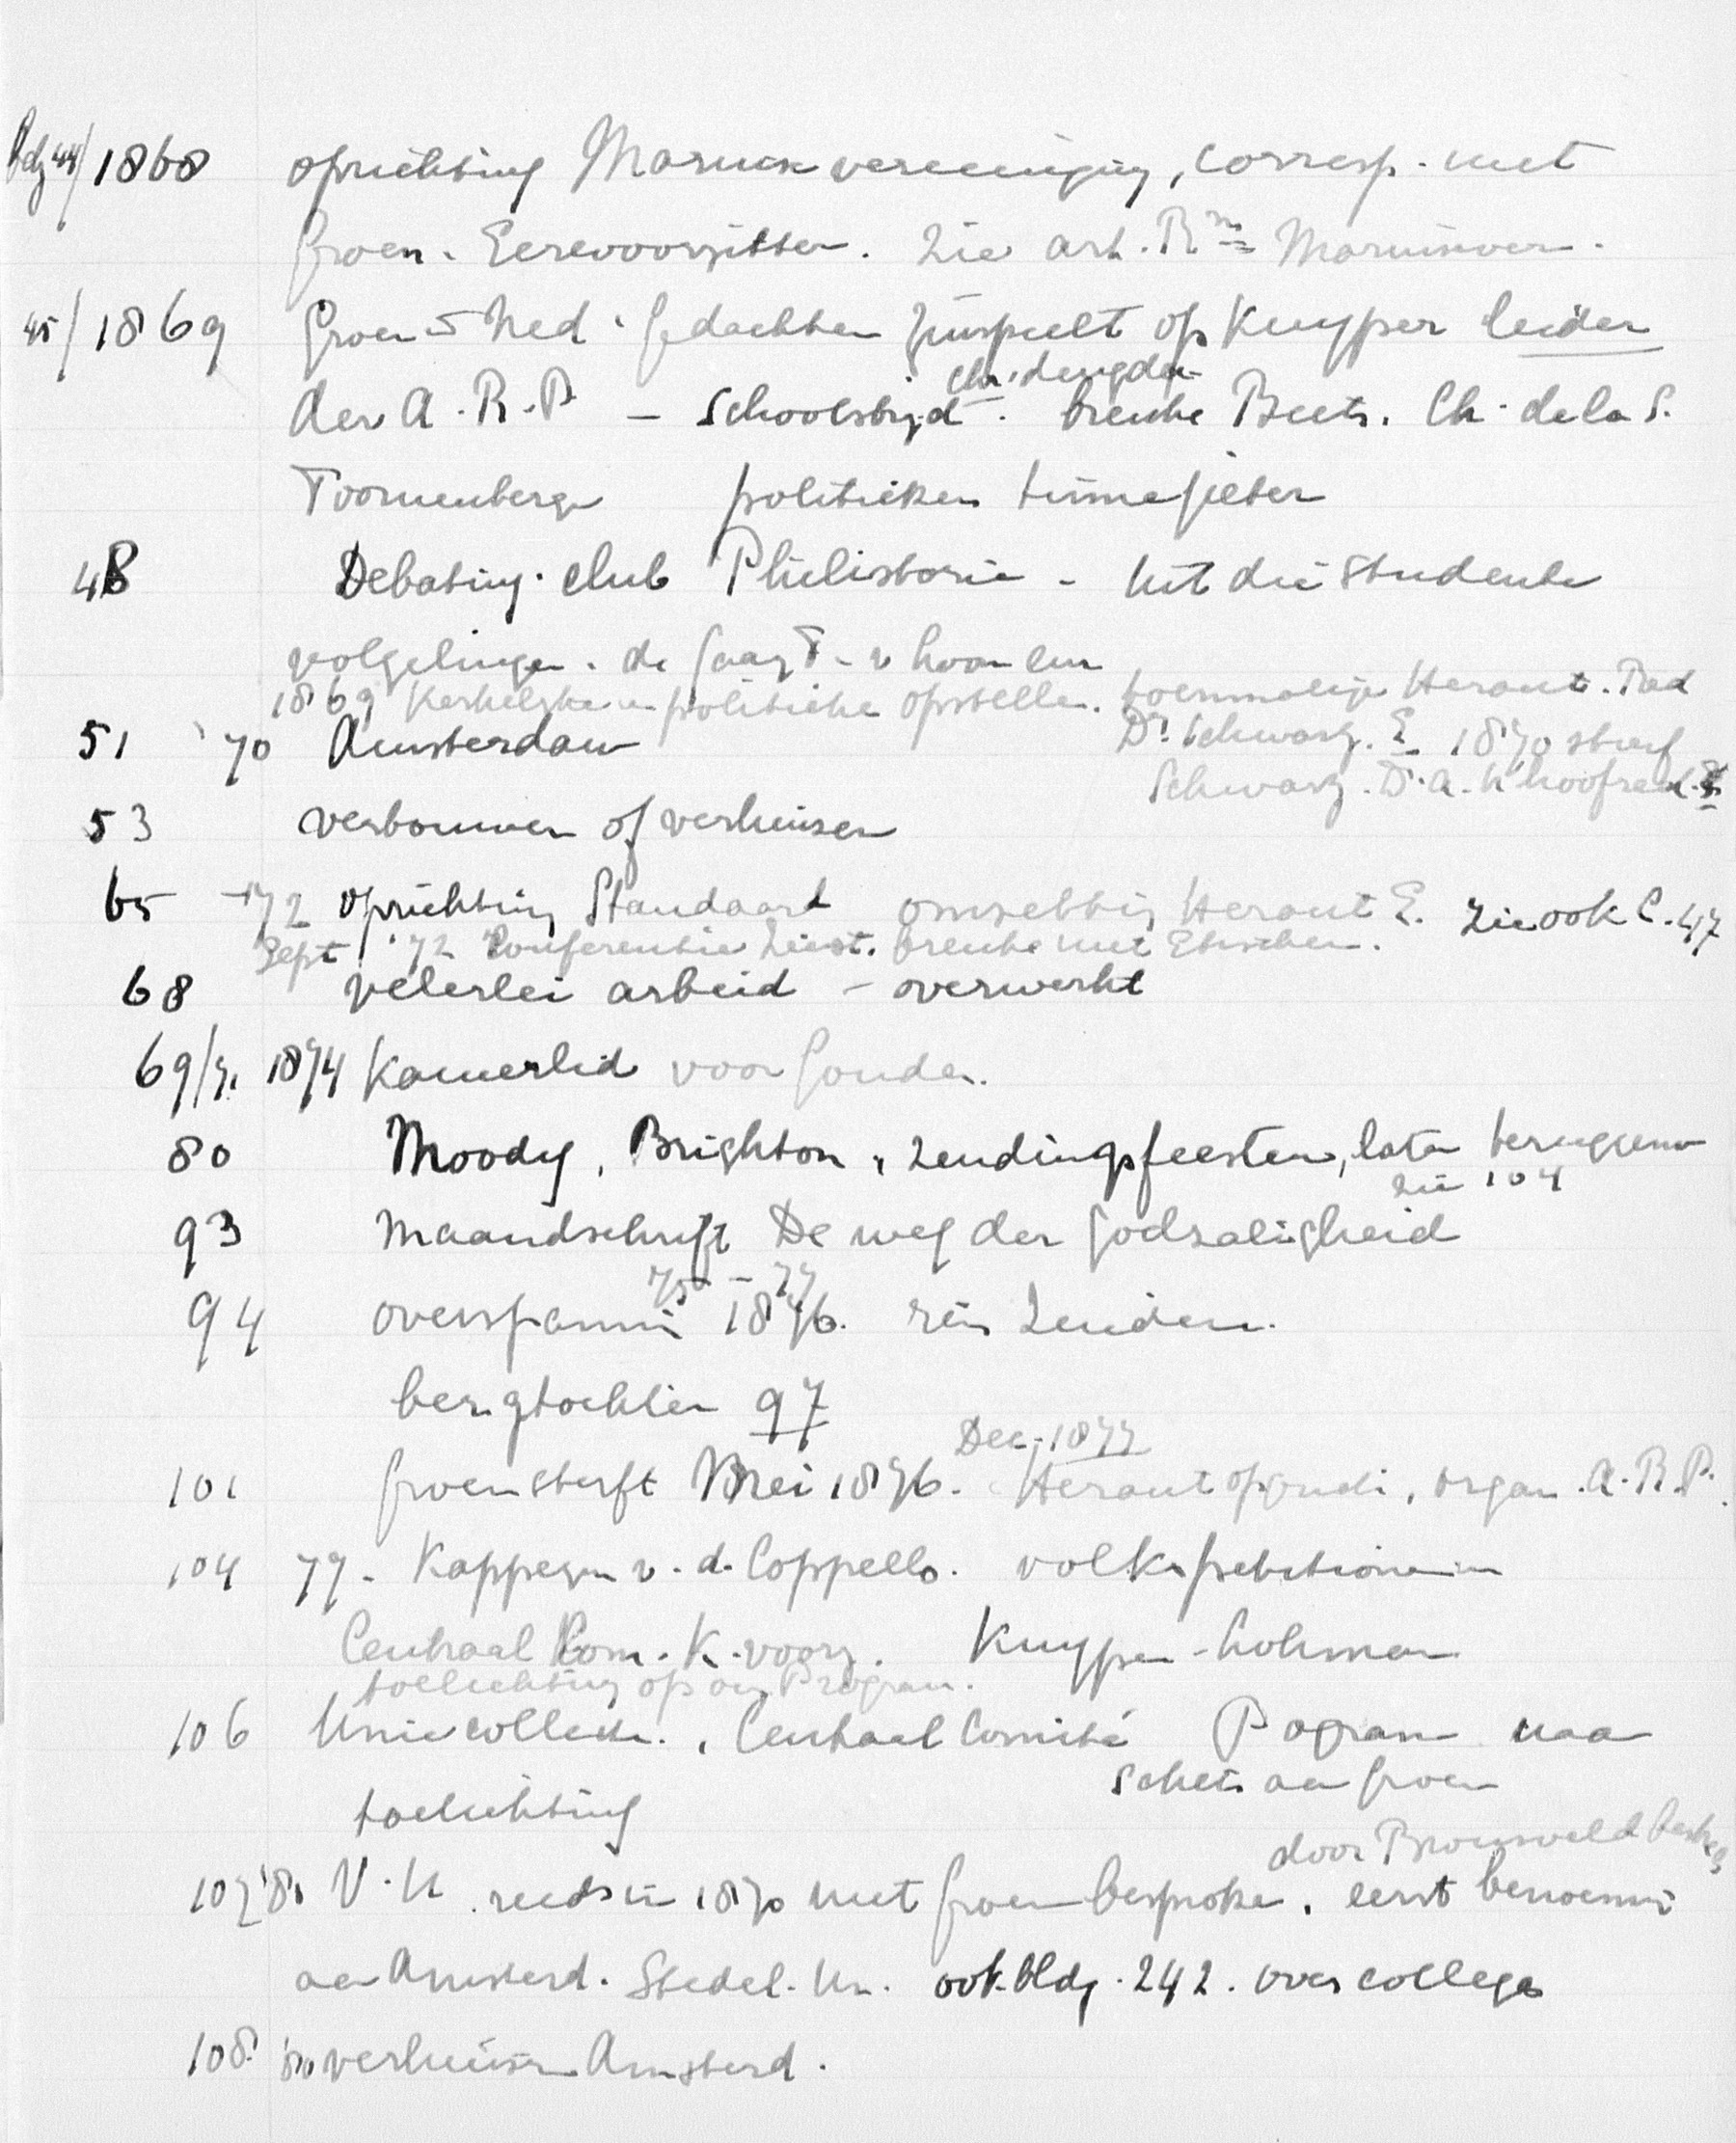 bldz 44/ 1868 oprichting Marnixvereeniging, corresp. met
Groen. Eerevoorzitter. Zie art. Rm = Marnixver.
45/ 1869 Groen's Ned. Gedachten zinspeelt op Kuyper leider
Chr. deugden
der A.R.P. – Schoolstrijd. breuke Beets. Ch. de la S.
Toornenbergen politieken tinnegieter
48 Debating club Philistoria – Uit die studenten
volgelingen. de Gaay F – v Loon en
1869 Kerkelijke en politieke opstellen. toenmalige Heraut. Red
Dr. Schwarz. E 1870 stierf
51 '70 Amsterdam
Schwarz. Dr. A. K hoofred. E
53 verbouwen of verhuizen
65 – '72 oprichting Standaard omzetting Heraut E. Zie ook C. 47
Sept '72 Conferentie Zeist. breuke met Ethischen.
68 velerlei arbeid – overwerkt
69/71 1874 Kamerlid voor Gouda.
80 Moody, Brighton, Zendingsfeesten, later teruggenom
zie 104
93 Maandschrift De weg der Godzaligheid
75 – 77
94 overspannin 1876. reis Zuiden.
bergtochten 97
Dec. 1877
101 Groen sterft Mei 1876. Heraut opgericht, orgaan A.R.P.
104 77 – Kappeyn v.d. Coppello. volkspetitionnement
Centraal Com. K. voorz. Kuyper – Lohman
toelichting op ons Program.
106 Uniecollecte. Centraal Comité Program naar
schets van Groen
toelichting
door Bronsveld
107 '80 V.U. reeds in 1870 met Groen besproken. eerst benoemin
aan Amsterd. Stedel. Un. ook bldz. 242. over colleges
108 '80 verhuizen Amsterd.